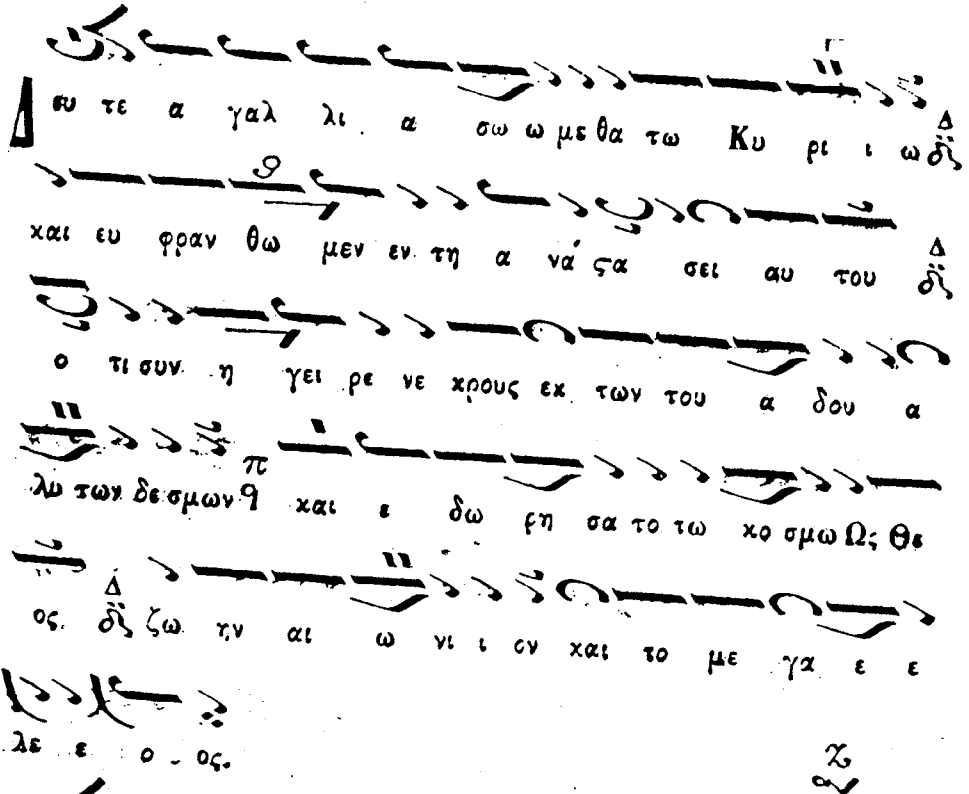 Δευ τε α γαλ λι α σω ω με θα τω Κυ ρι ι ω Δ
και ευ φραν θω μεν εν τη α νά ϛα σει αυ του Δ
ο τι συν η γει ρε νε κρους εκ των του α δου α
λυ των δε σμων π και ε δω ρη σα το τω κο σμω Ως Θε
ος. Δ ζω ην αι ω νι ι ον και το με γα ε ε
λε ε ο ος.